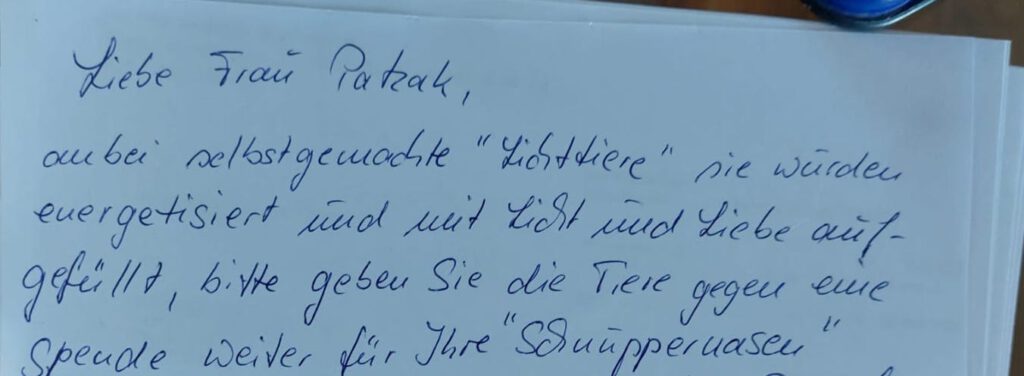 Liebe Frau Patzak,
anbei selbstgemachte "Lichttiere" sie wurden
energetisiert und mit Licht und Liebe auf-
gefüllt, bitte geben Sie die Tiere gegen eine
Spende weiter für Ihre "Schnuppernasen"